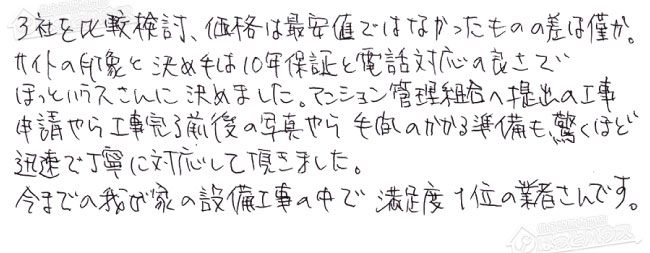 3社を比較検討、価格は最安値ではなかったものの差は僅か。
サイトの印象と決め手は10年保証と電話対応の良さで
ほっとハウスさんに決めました。マンション管理組合へ提出の工事
申請やら工事完了前後の写真やら手間のかかる準備も驚くほど
迅速で丁寧に対応して頂きました。
今までの我が家の設備工事の中で満足度1位の業者さんです。